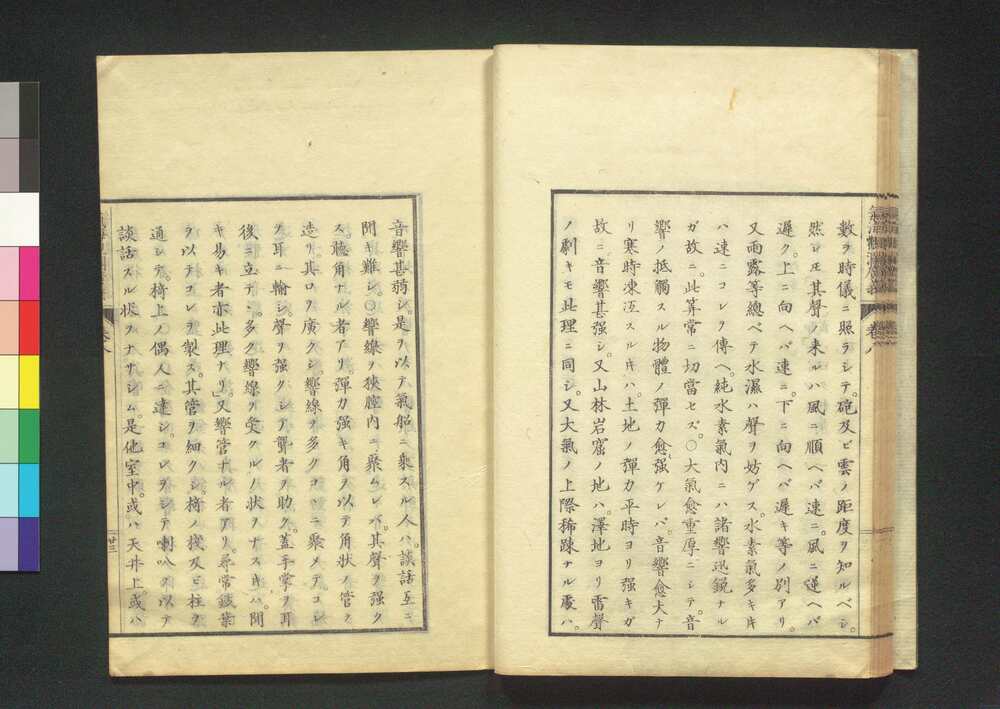 數ヲ時儀ニ照ラシテ。砲及ビ雲ノ距度ヲ知ルベシ。
然レ𪜈其聲ノ来ルハ。風ニ順ヘバ速ニ。風ニ逆ヘバ
遲ク。上ニ向ヘバ速ニ。下ニ向ヘバ遲キ等ノ別アリ。
又雨露等總ベテ水濕ハ聲ヲ妨ゲス。水素氣多キ𬼀
ハ速ニコレヲ傳ヘ。純水素氣内ニハ諸響迅鋭ナル
ガ故ニ。此算常ニ切當セズ。〇大氣愈重厚ニシテ。音
響ノ抵觸スル物體ノ彈力愈強ケレバ。音響愈大ナ
リ寒時凍冱スル𬼀ハ。土地ノ彈力平時ヨリ強キガ
故ニ音響甚强シ。又山林岩窟ノ地ハ。澤地ヨリ雷聲
ノ劇キモ此理ニ同ジ。又大氣ノ上際稀踈ナル處ハ。
卷八
音響甚弱シ。是ヲ以テ氣船ニ乘スル人ハ。談話互ニ
聞キ難シ。〇響線ヲ狹腔内ニ聚ムレバ。其聲ヲ强ク
ス聽角ナル者アリ。彈力强キ角ヲ以テ角狀ノ管ヲ
造リ。其口ヲ廣クシ。響線ヲ多クコヽニ聚メテ。コレ
ヲ耳ニ輸シ。聲ヲ强クシテ聾者ヲ助ク。蓋手掌ヲ耳
後ニ立テヽ。多ク響線ヲ受クルノ狀ヲナス𬼀ハ。聞
キ易キ者亦此理ナリ。又響管ナル者アリ。尋常鐵葉
ヲ以テコレヲ製ス。其管ヲ細クシ。椅ノ機及ビ柱ヲ
通シテ。椅上ノ偶人ニ達シ。コレヲシテ喇叭ヲ以テ
談話スル狀ヲナサシム。是他室中。或ハ天井上。或ハ
廿三